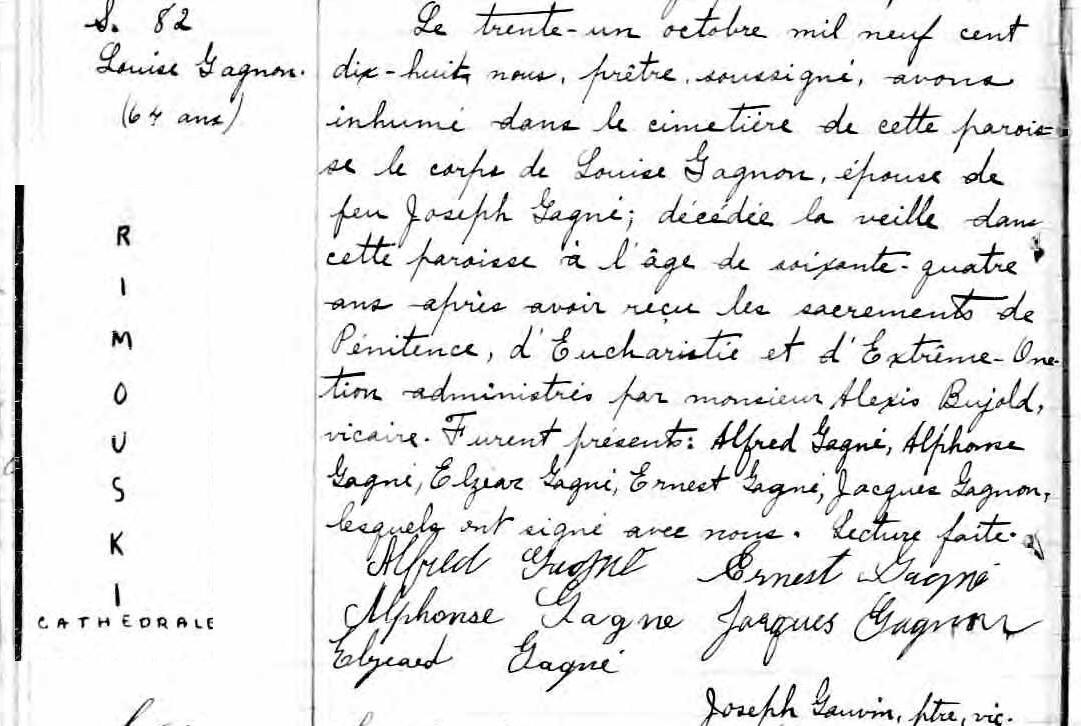 S. 82
Louise Gagnon.
(64 ans)
RIMOUSKI
CATHEDRALE
Le trente-un octobre mil neuf cent
dix-huit, nous, prêtre soussigné, avons
inhumé dans le cimetière de cette parois=
se le corps de Louise Gagnon, épouse de
feu Joseph Gagné; décédée la veille dans
cette paroisse à l'âge de soixante-quatre
ans après avoir reçu les sacrements de
Pénitence, d'Eucharistie et d'Extrême-Onc-
tion administrés par monsieur Alexis Bujold,
vicaire. Furent présents: Alfred Gagné, Alphonse
Gagné, Elzéar Gagné, Ernest Gagné, Jacques Gagnon,
lesquels ont signé avec nous. Lecture faite.
Alfred Gagné Ernest Gagné
Alphonse Gagne Jacques Gagnon
Elzeard Gagné
Joseph Gauvin, ptre, vic.